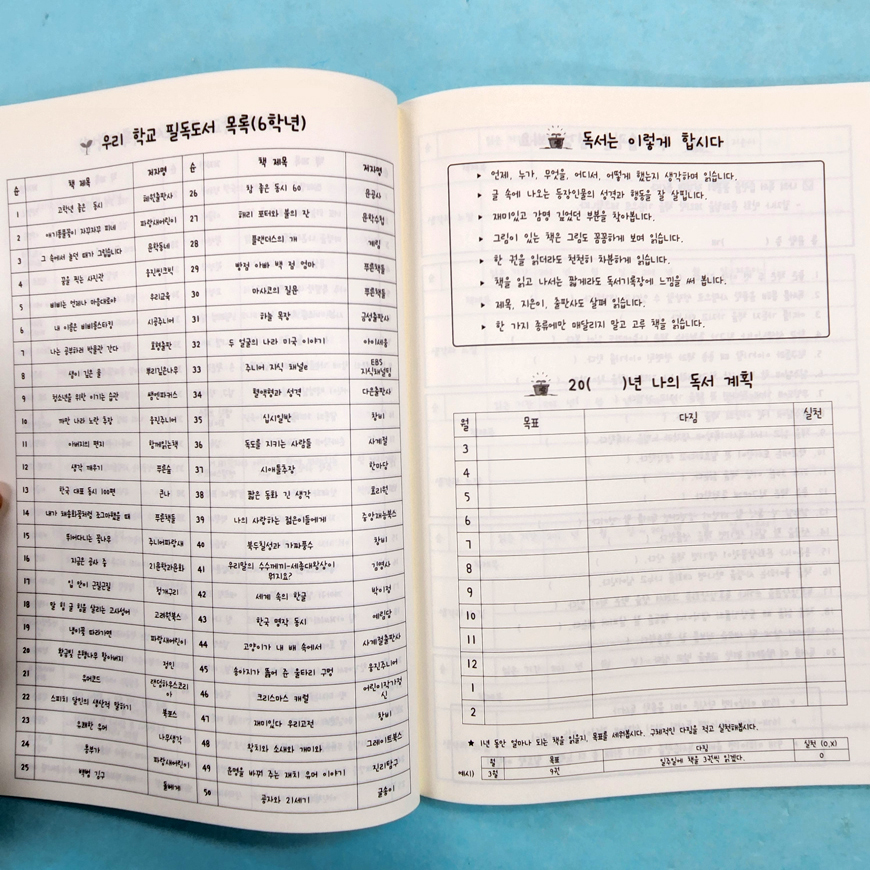 우리 학교 필독도서 목록(6학년)
순 책 제목 저자명 순 책 제목 저자명
1 고학년 좋은 동시 혜원출판사 26 참 좋은 동시 60 문공사
2 애기똥풀꽃이 자꾸자꾸 피네 파랑새어린이 27 해리 포터와 불의 잔 문학수첩
3 그 숲에서 놀던 때가 그립습니다 문학동네 28 플랜더스의 개 계림
4 꿈을 찍는 사진관 웅진씽크빅 29 빵점 아빠 백 점 엄마 푸른책들
5 비비는 언제나 마음대로야 우리교육 30 마사코의 질문 푸른책들
6 내 이름은 삐삐롱스타킹 시공주니어 31 하늘 목장 금성출판사
7 나는 공부하러 박물관 간다 효형출판 32 두 얼굴의 나라 미국 이야기 아이세움
8 샘이 깊은 물 뿌리깊은나무 33 주니어 지식 채널e EBS
지식채널팀
9 청소년을 위한 이기는 습관 쌤앤파커스 34 혈액형과 성격 다은출판사
10 깨만 나라 노란 추장 웅진주니어 35 십시일반 창비
11 아버지의 편지 함께읽는책 36 독도를 지키는 사람들 사계절
12 생각 깨우기 푸른숲 37 시애틀추장 한마당
13 한국 대표 동시 100편 큰나 38 짧은 동화 긴 생각 효리원
14 내가 채송화꽃처럼 조그마했을 때 푸른책들 39 나의 사랑하는 젊은이들에게 중앙재능북스
15 뛰어다니는 꽃나무 주니어파랑새 40 북두칠성과 가짜풍수 창비
16 지금은 공사 중 21문학과문화 41 우리말의 수수께끼-세종대왕상이 김영사
뭐지요?
17 입 안이 근질근질 청개구리 42 세계 속의 한글 박이정
18 말 힘 글 힘을 살리는 고사성어 고래북스 43 한국 명작 동시 예림당
19 냉이꽃 따라가면 파랑새어린이 44 고양이가 내 배 속에서 사계절출판사
20 황금빛 은행나무 할아버지 정인 45 송아지가 뚫어 준 울타리 구멍 웅진주니어
21 유머코드 랜덤하우스코리 46 크리스마스 캐럴 어린이작가정
아 신
22 스피치 달인의 생산적 말하기 북포스 47 재미있다 우리고전 창비
23 유쾌한 유머 나무생각 48 참치와 소새와 개미와 그레이트북스
24 흥부가 파랑새어린이 49 운명을 바꿔 주는 재치 유머 이야기 진리탐구
25 백범 김구 돌베개 50 공자와 21세기 글송이
독서는 이렇게 합시다
▶ 언제, 누가, 무엇을, 어디서, 어떻게 했는지 생각하며 읽습니다.
▶ 글 속에 나오는 등장인물의 성격과 행동을 잘 살핍니다.
▶ 재미있고 감명 깊었던 부분을 찾아봅니다.
▶ 그림이 있는 책은 그림도 꼼꼼하게 보며 읽습니다.
▶ 한 권을 읽더라도 천천히 차분하게 읽습니다.
▶ 책을 읽고 나서는 짧게라도 독서기록장에 느낌을 써 봅니다.
▶ 제목, 지은이, 출판사도 살펴 읽습니다.
▶ 한 가지 종류에만 매달리지 말고 고루 책을 읽습니다.
20( )년 나의 독서 계획
월 목표 다짐 실천
3
4
5
6
7
8
9
10
11
12
1
2
★ 1년 동안 얼마나 되는 책을 읽을지, 목표를 세워봅시다. 구체적인 다짐을 적고 실천해봅시다.
월 목표 다짐 실천 (O,X)
예시) 3월 9권 일주일에 책을 3권씩 읽겠다. O